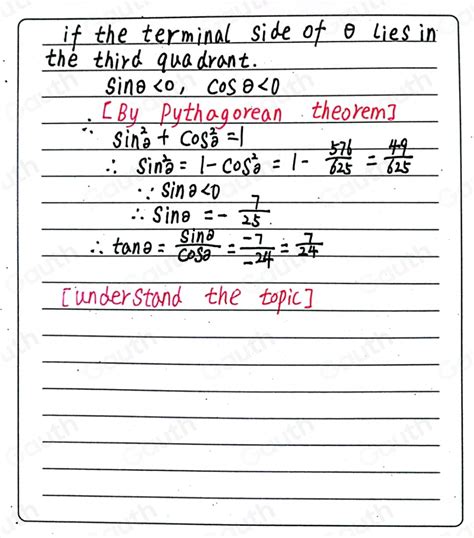 if the terminal side of θ lies in
the third quadrant.
sinθ<0, cosθ<0
[By Pythagorean theorem]
∵ sin²θ + cos²θ = 1
∴ sin²θ = 1 - cos²θ = 1 - 576/625 = 49/625
∵ sinθ<0
∴ sinθ = - 7/25
∴ tanθ = sinθ/cosθ = -7/-24 = 7/24
[understand the topic]